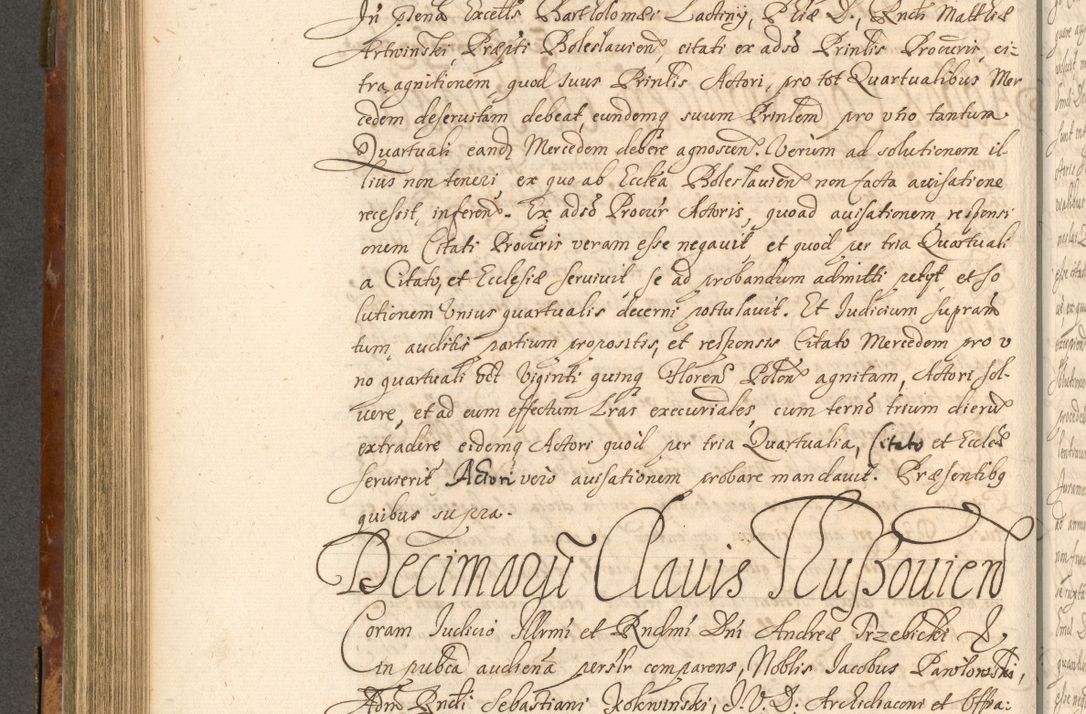 In Dena Excellis Bartholomæi Lactiny, Phiæ D., Rndi Matthiæ
Artwinski, Præpti Boleslavien̄ citati ex adsō Prinlis Procuris, ci-
tra agnitionem quod suus Prinlis Actori, pro tot Quartualibus Mer
cedem deservitam debeat, eundemq suum Prinlem pro vno tantum
Quartuali eand Mercedem debere agnoscen. Verum ad solutionem il
lius non teneri, ex quo ab Ecclea Boleslavien non facta avisatione
recessit, inferen. Ex adsō Procur Actoris, quoad avisationem, responsi
onem Citati Procuris veram esse negavit, et quod per tria Quartuali
a Citato, et Ecclesiæ servivit se ad probandum admitti petyt, et so
lutionem Vnius quartualis decerni postulavit. Et Iudicium supram
tum, auditis partium propositis, et responsis Citato Mercedem pro v
no quartuali Viginti quinq Floren Polon agnitam, Actori sol-
vere, et ad eum effectum Lras execuriales cum terno trium dieru
extradere eidemq Actori quod per tria Quartualia, Citato et Eccleæ
serviverit Actori vero avisationem probare mandavit. Præsentibq
quibus supra.
Decimaru Clavis Ilusovien
Coram Iudicio Illrmi et Rndmi Dni Andreæ Trzebicki &
in publca audiena persolr comparens, Noblis Iacobus Pawlowski,
Adm Rndi Sebastiani Rokowinski, I. V. D. Archidiaconi et Offia: